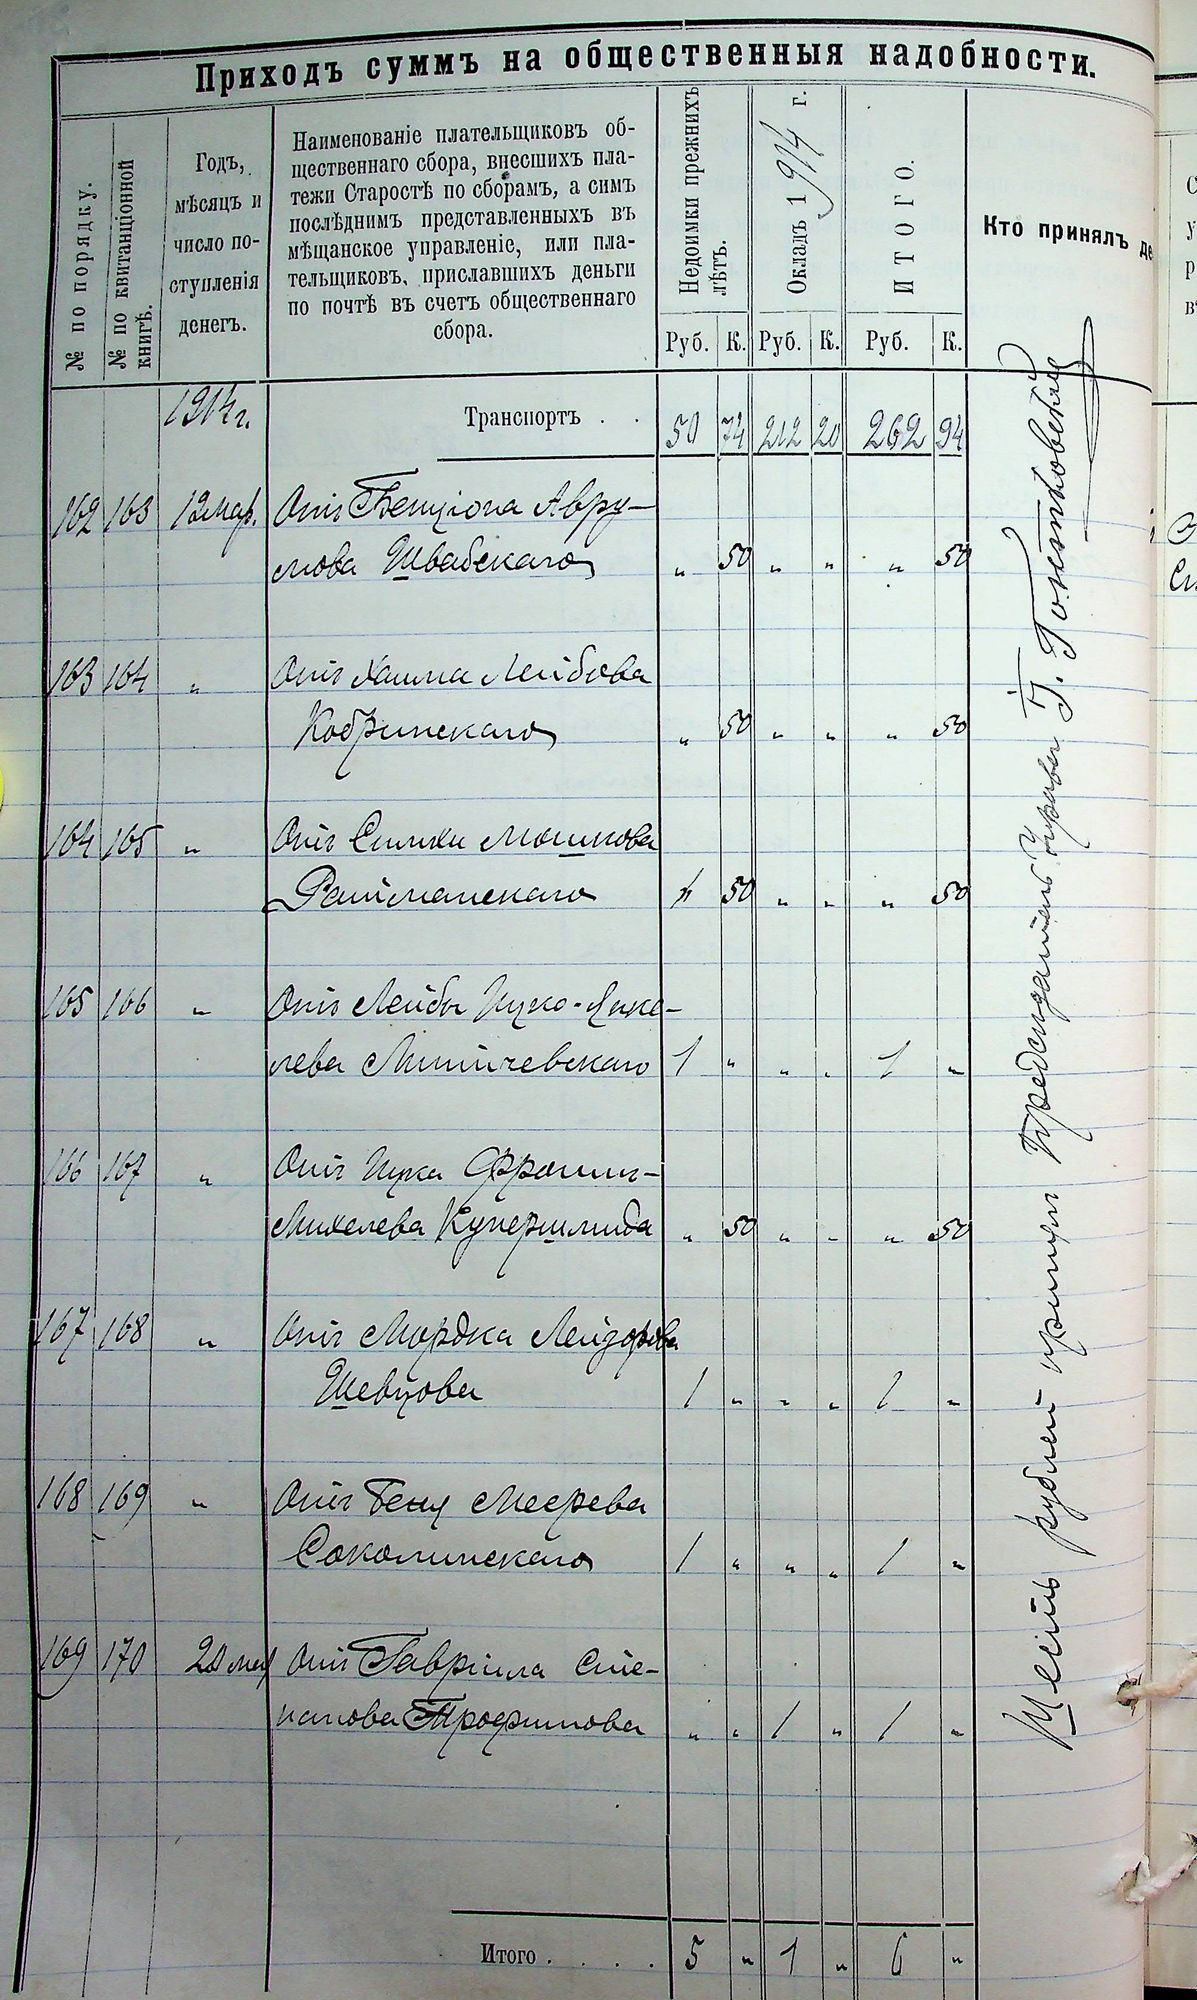 Приходъ суммъ на общественныя надобности.
№ по порядку.
№ по квитанціонной
книгѣ.
Годъ,
мѣсяцъ и
число по-
ступленія
денегъ.
Наименованіе плательщиковъ об-
щественнаго сбора, внесшихъ пла-
тежи Старостѣ по сборамъ, а симъ
послѣднимъ представленныхъ въ
мѣщанское управленіе, или пла-
тельщиковъ, приславшихъ деньги
по почтѣ въ счетъ общественнаго
сбора.
Недоимки прежнихъ
лѣтъ.
Окладъ 1914 г.
ИТОГО.
Кто принялъ де
Руб. К. Руб. К. Руб. К.
1914 г. Транспортъ . . 50 74 212 20 262 94
162 163 12 мар. Отъ Бенціона Авру-
мова Швабскаго „ 50 „ „ „ 50
163 164 „ Отъ Хаима Лейбова
Кобринскаго „ 50 „ „ „ 50
164 165 „ Отъ Симхи Мошкова
Райтманскаго „ 50 „ „ „ 50
165 166 „ Отъ Лейбы Ицко-Янке-
лева Литичевскаго 1 „ „ „ 1 „
166 167 „ Отъ Ицка Фроим-
Михелева Купершмида „ 50 „ „ „ 50
167 168 „ Отъ Мордка Лейзорова
Шевцова 1 „ „ „ 1 „
168 169 „ Отъ Бенц Меерева
Соколинскаго 1 „ „ „ 1 „
169 170 20 мар Отъ Гавріила Сте-
панова Трофимова „ „ 1 „ 1 „
Итого . . . . 5 „ 1 „ 6 „
Шесть рублей принялъ Предсѣдатель Управы